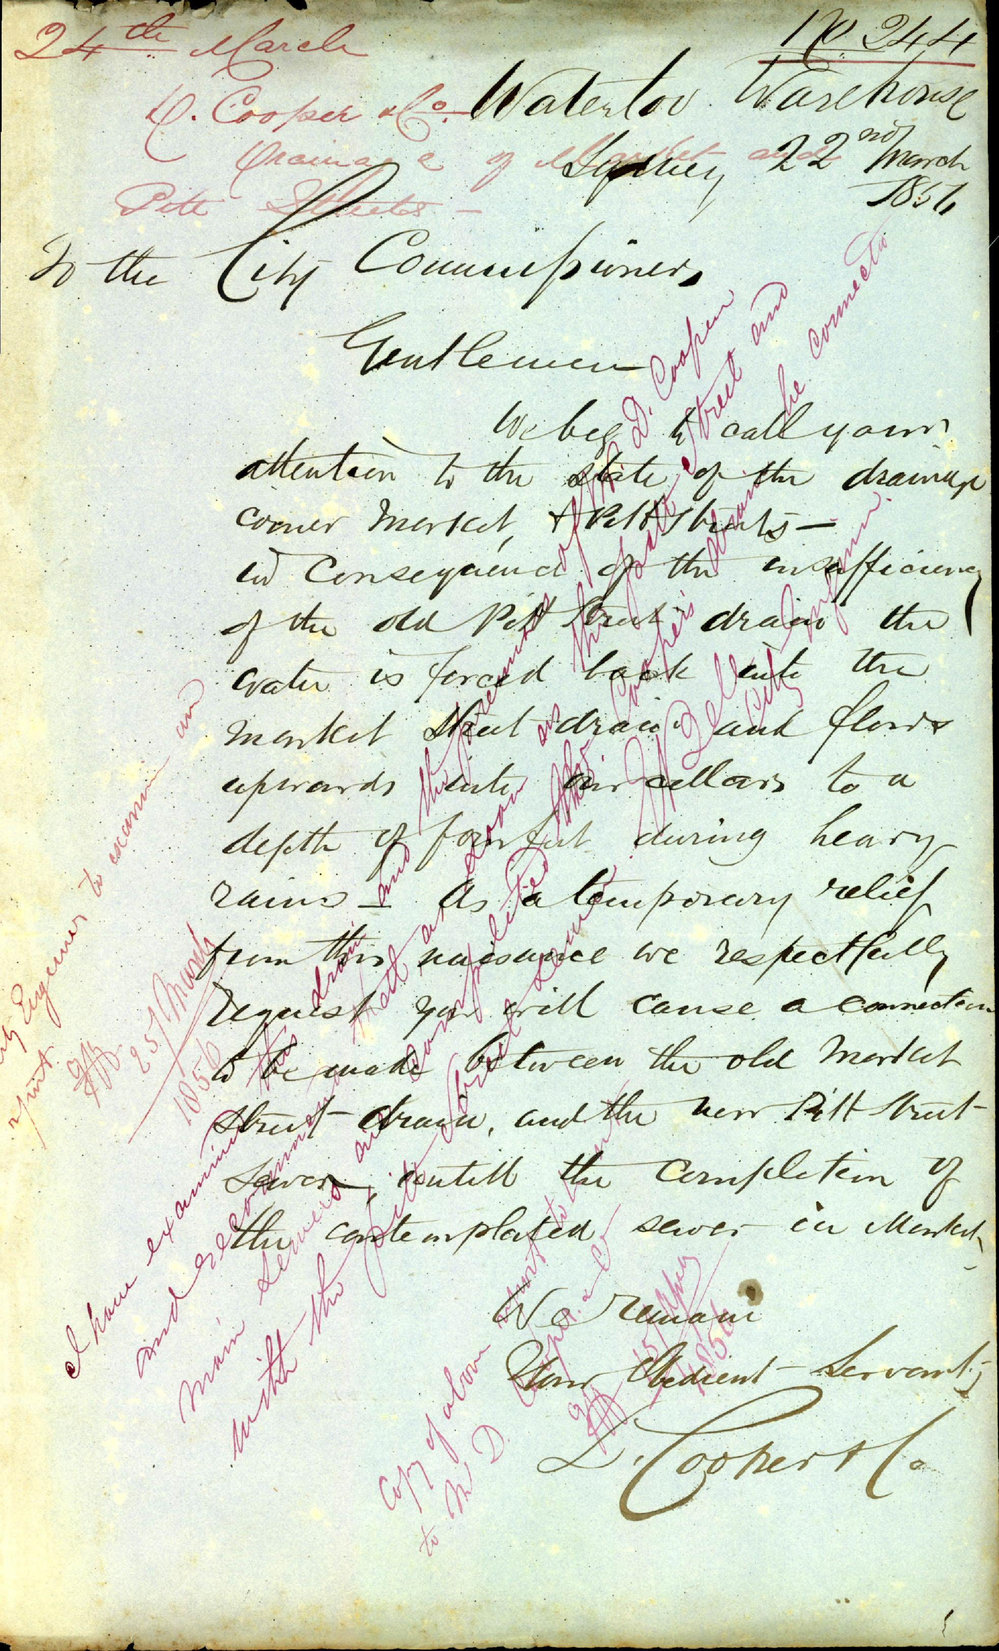 24th March
No 244
D. Cooper & Co.
Drainage of Market and
Pitt Streets —
Waterloo Warehouse
Sydney 22nd March
1856
To the City Commissioners
Gentlemen
We beg to call your
attention to the state of the drainage
corner Market, & Pitt Streets —
in consequence of the insufficiency
of the old Pitt Street drain the
water is forced back into the
Market Street drain and flows
upwards into our cellars to a
depth of four feet during heavy
rains — As a temporary relief
from this nuisance we respectfully
request you will cause a connection
to be made between the old Market
Street drain, and the new Pitt Street
Sewer, untill the completion of
the contemplated sewer in Market
We remain
Your Obedient Servants
D. Cooper & Co
City Engineer to examine and
report
25 March
1856
I have examined this drain and the premises of Mr D. Cooper
and recommend that as soon as the Pitt Street and
main sewers are completed Mr Cooper's drain be connected
with the Pitt Street Sewer
City Engineer.
Copy of above report to be sent
to Mr D. Cooper & Co
1856